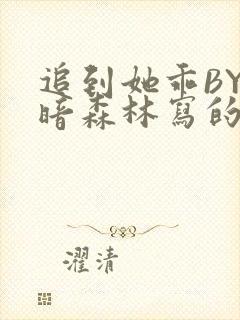 追到她乖BY
暗森林寫的
濯清